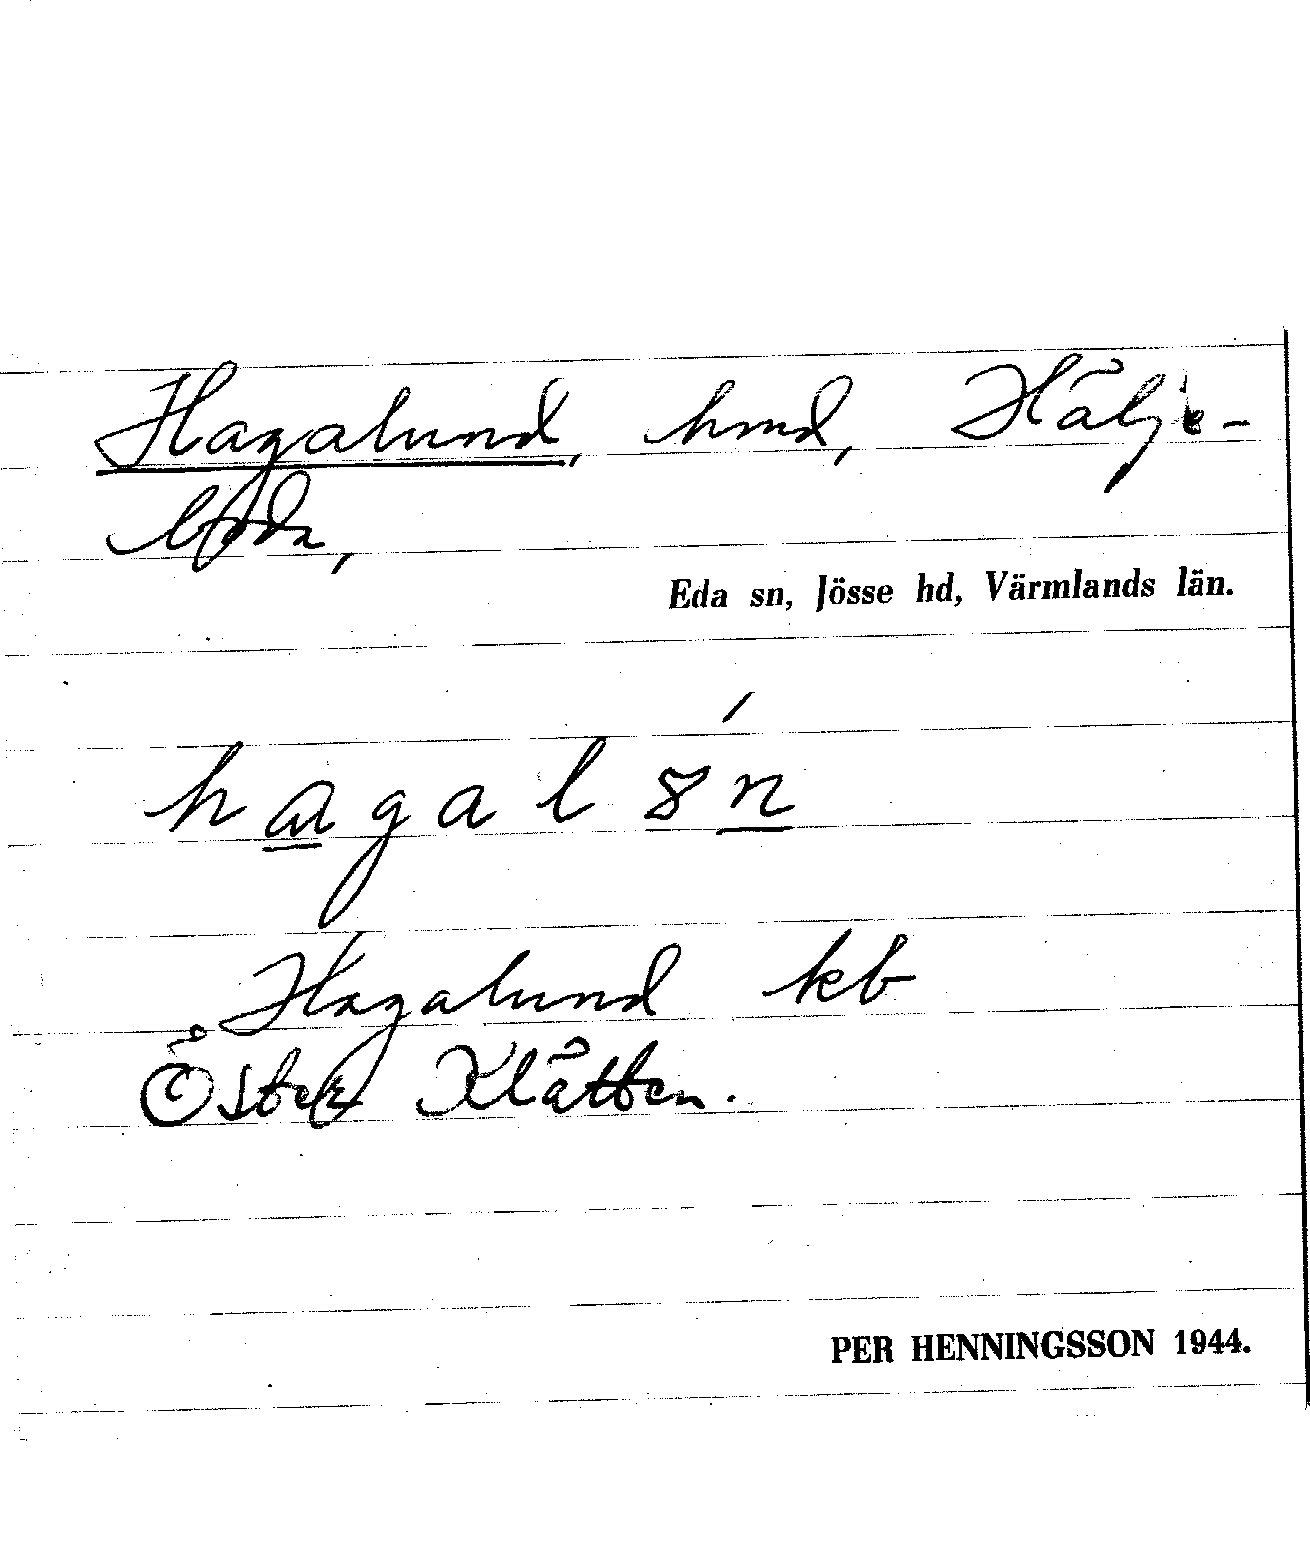 Hagalund, hmd, Hälje-
boda,
Eda sn, Jösse hd, Värmlands län.
hagalөn
Hagalund kb
Öster Klätten.
PER HENNINGSSON 1944.